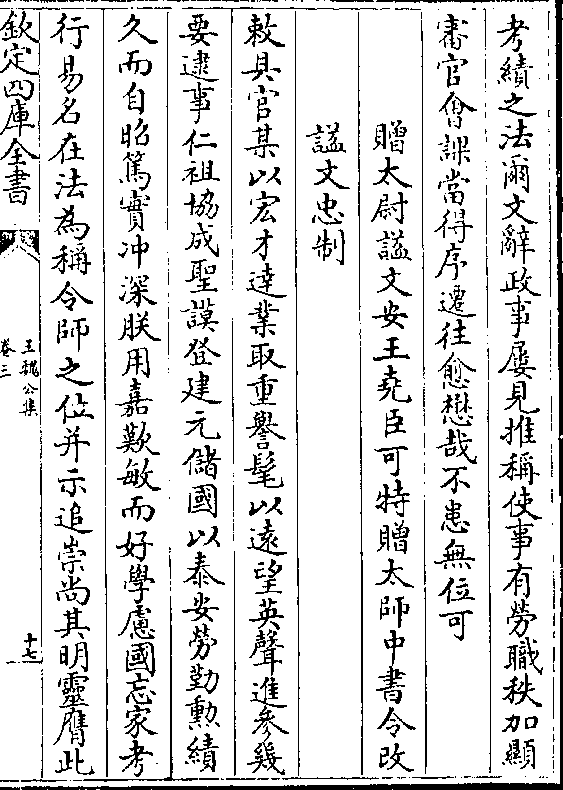 考績之法爾文辭政事屢見推稱使事有勞職秩加顯
審官會課當得序遷往愈懋哉不患無位可
贈太尉諡文安王堯臣可特贈太師中書令改
諡文忠制
敕具官某以宏才逹業取重譽髦以遠望英聲進參幾
要逮事仁祖協成聖謨登建元儲國以泰安勞勤勲績
久而自昭篤實冲深朕用嘉歎敏而好學慮國忘家考
行易名在法為稱令師之位并示追崇尚其明靈膺此
欽定四庫全書
王魏公集
卷三
十七